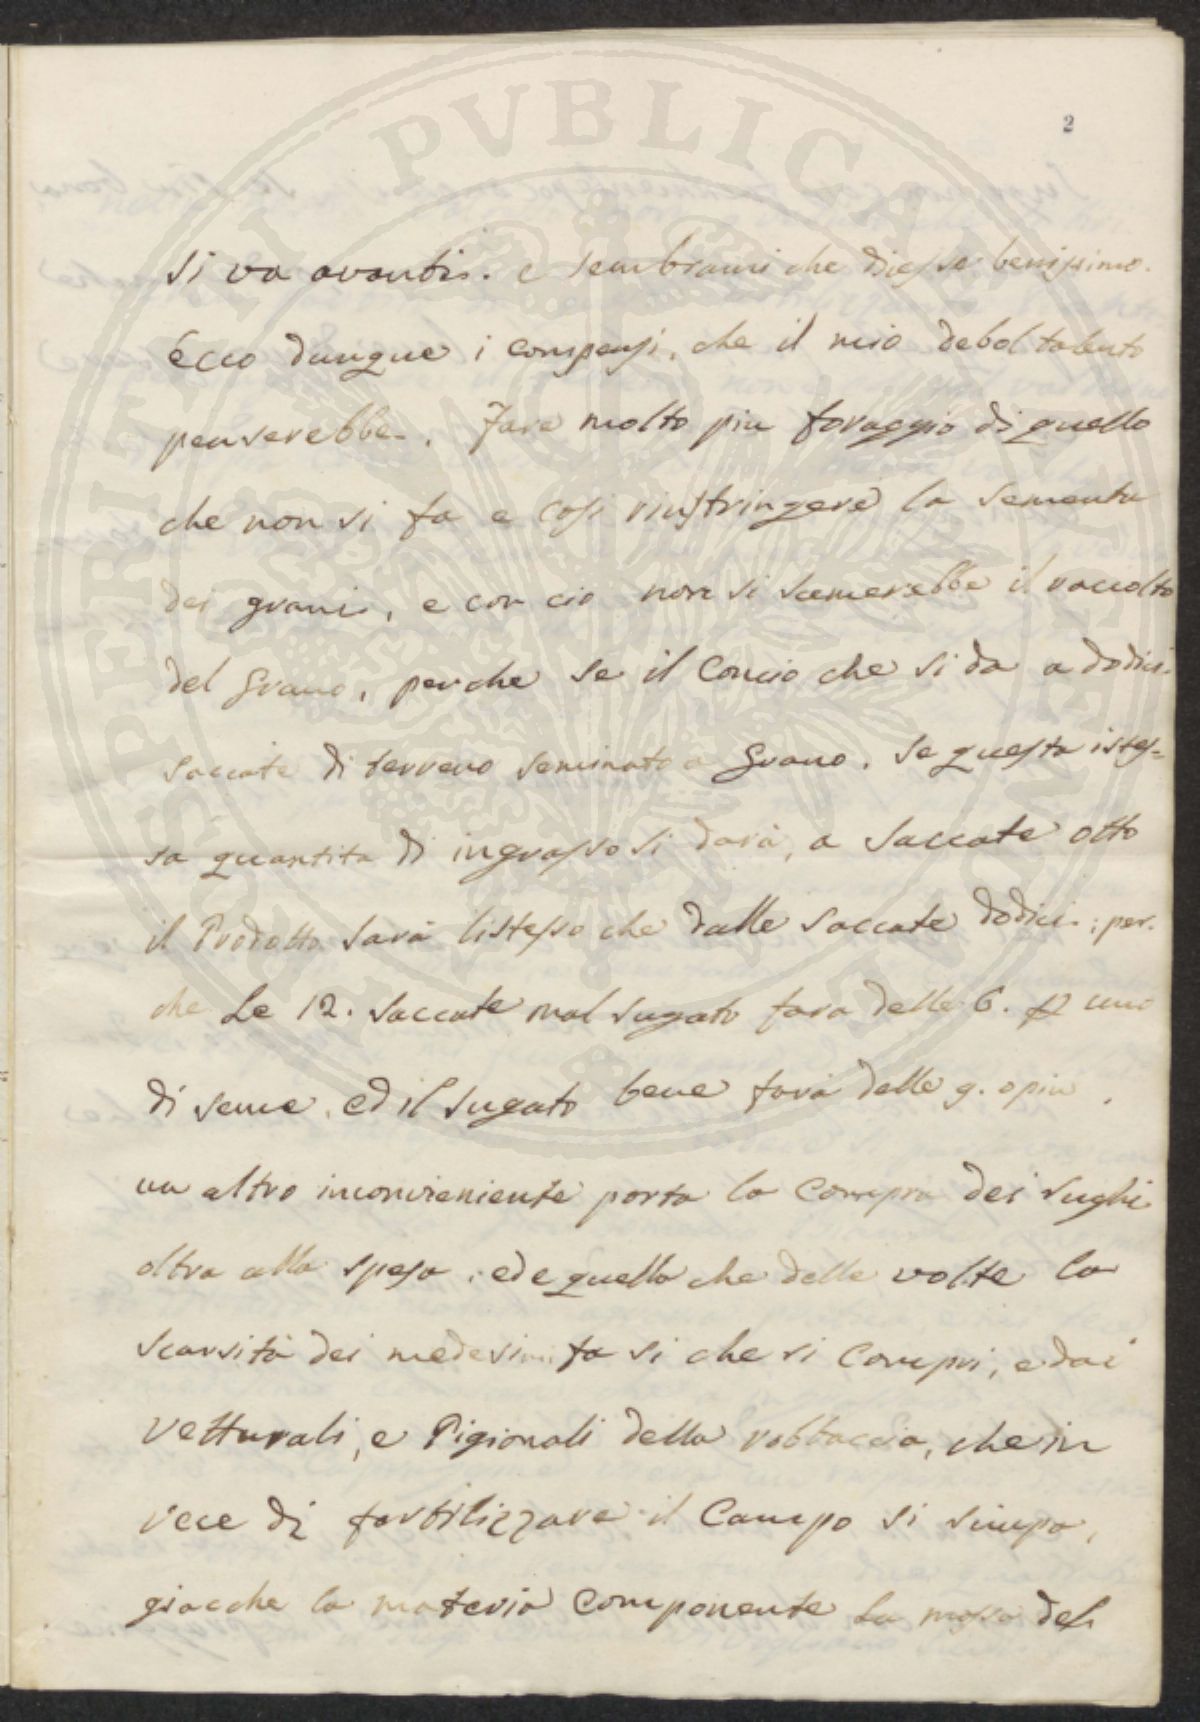 2
si va avanti. e sembrami che dicesse benissimo.
Ecco dunque i compensi, che il mio debol talento
penserebbe. Fare molto piu foraggio di quello
che non si fa e cosi rinstringere la sementa
dei grani, e con cio non si scemerebbe il raccolto
del Grano, perche se il Concio che si da a dodici
saccate di terreno seminato a Grano. se questa istes-
sa quantita di ingrasso si darà, a saccate otto
il Prodotto sarà listesso che dalle saccate dodici; per-
che Le 12. saccate mal sugato fara delle 6. p uno
di seme, ed il sugato bene farà delle 9. o piu.
un altro inconvieniente porta la Compra dei sughi
oltra alla spesa; ed e quello che delle volte la
scarsità dei medesimi fa si che si Compri, e dai
Vetturali, e Pigionali della robbaccia, che in
vece di fertilizzare il Campo si simpo,
giacche la materia Componente La massa del
PERITI PVBLICAE